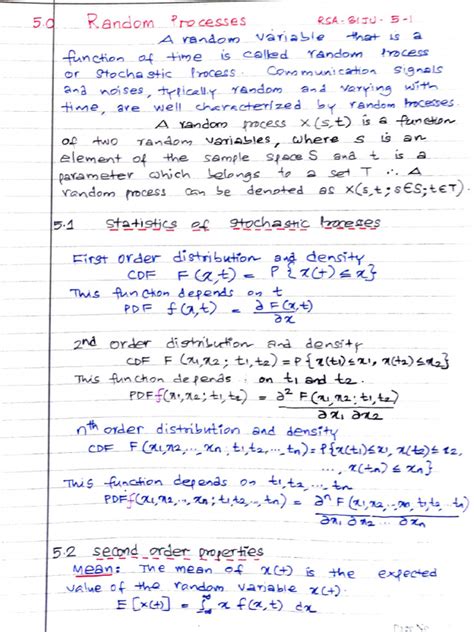 5.0 Random Processes RSA-BIJU-5-1
A random variable that is a
function of time is called random Process
or Stochastic Process. Communication signals
and noises, typically random and varying with
time, are well characterized by random processes.
A random process X(s,t) is a function
of two random variables, where s is an
element of the sample space S and t is a
parameter which belongs to a set T ∴ A
random process can be denoted as X(s,t; s∈S; t∈T).
5.1 Statistics of Stochastic Processes
First order distribution and density
CDF F(x,t) = P{x(t) ≤ x}
This function depends on t
PDF f(x,t) = ∂F(x,t)/∂x
2nd order distribution and density
CDF F(x1,x2; t1,t2) = P{x(t1)≤x1, x(t2)≤x2}
This function depends on t1 and t2.
PDF f(x1,x2; t1,t2) = ∂² F(x1,x2; t1,t2)/∂x1 ∂x2
nth order distribution and density
CDF F(x1,x2,..,xn; t1,t2,..,tn) = P{x(t1)≤x1, x(t2)≤x2,
..., x(tn) ≤ xn}
This function depends on t1,t2,..,tn
PDF f(x1,x2,..,xn; t1,t2,..,tn) = ∂ⁿ F(x1,x2,..,xn, t1,t2,..tn)/∂x1 ∂x2 ... ∂xn
5.2 second order properties
Mean: The mean of x(t) is the expected
value of the random variable x(t).
E[x(t)] = ∫ x f(x,t) dx
Page No